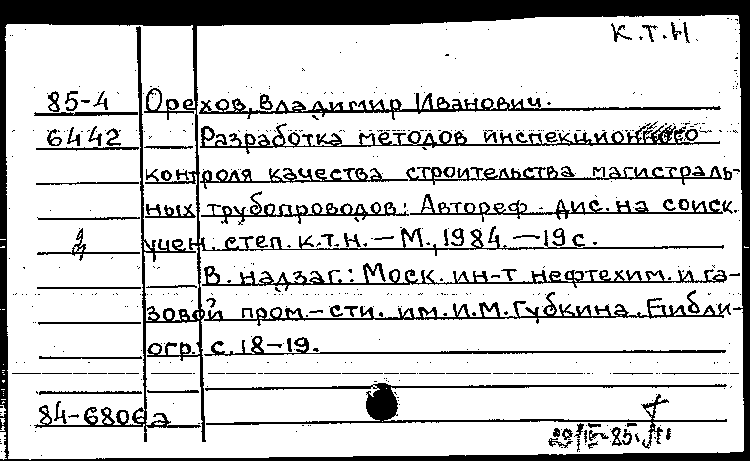 К.Т.Н.
85-4 Орехов, Владимир Иванович.
6442 Разработка методов инспекционного
контроля качества строительства магистраль-
ных трубопроводов: Автореф. дис. на соиск.
учен. степ. к.т.н. — М., 1984. — 19 с.
В. надзаг.: Моск. ин-т нефтехим. и га-
зовой пром-сти. им. И.М. Губкина. Библи-
огр. с. 18-19.
84-6806а